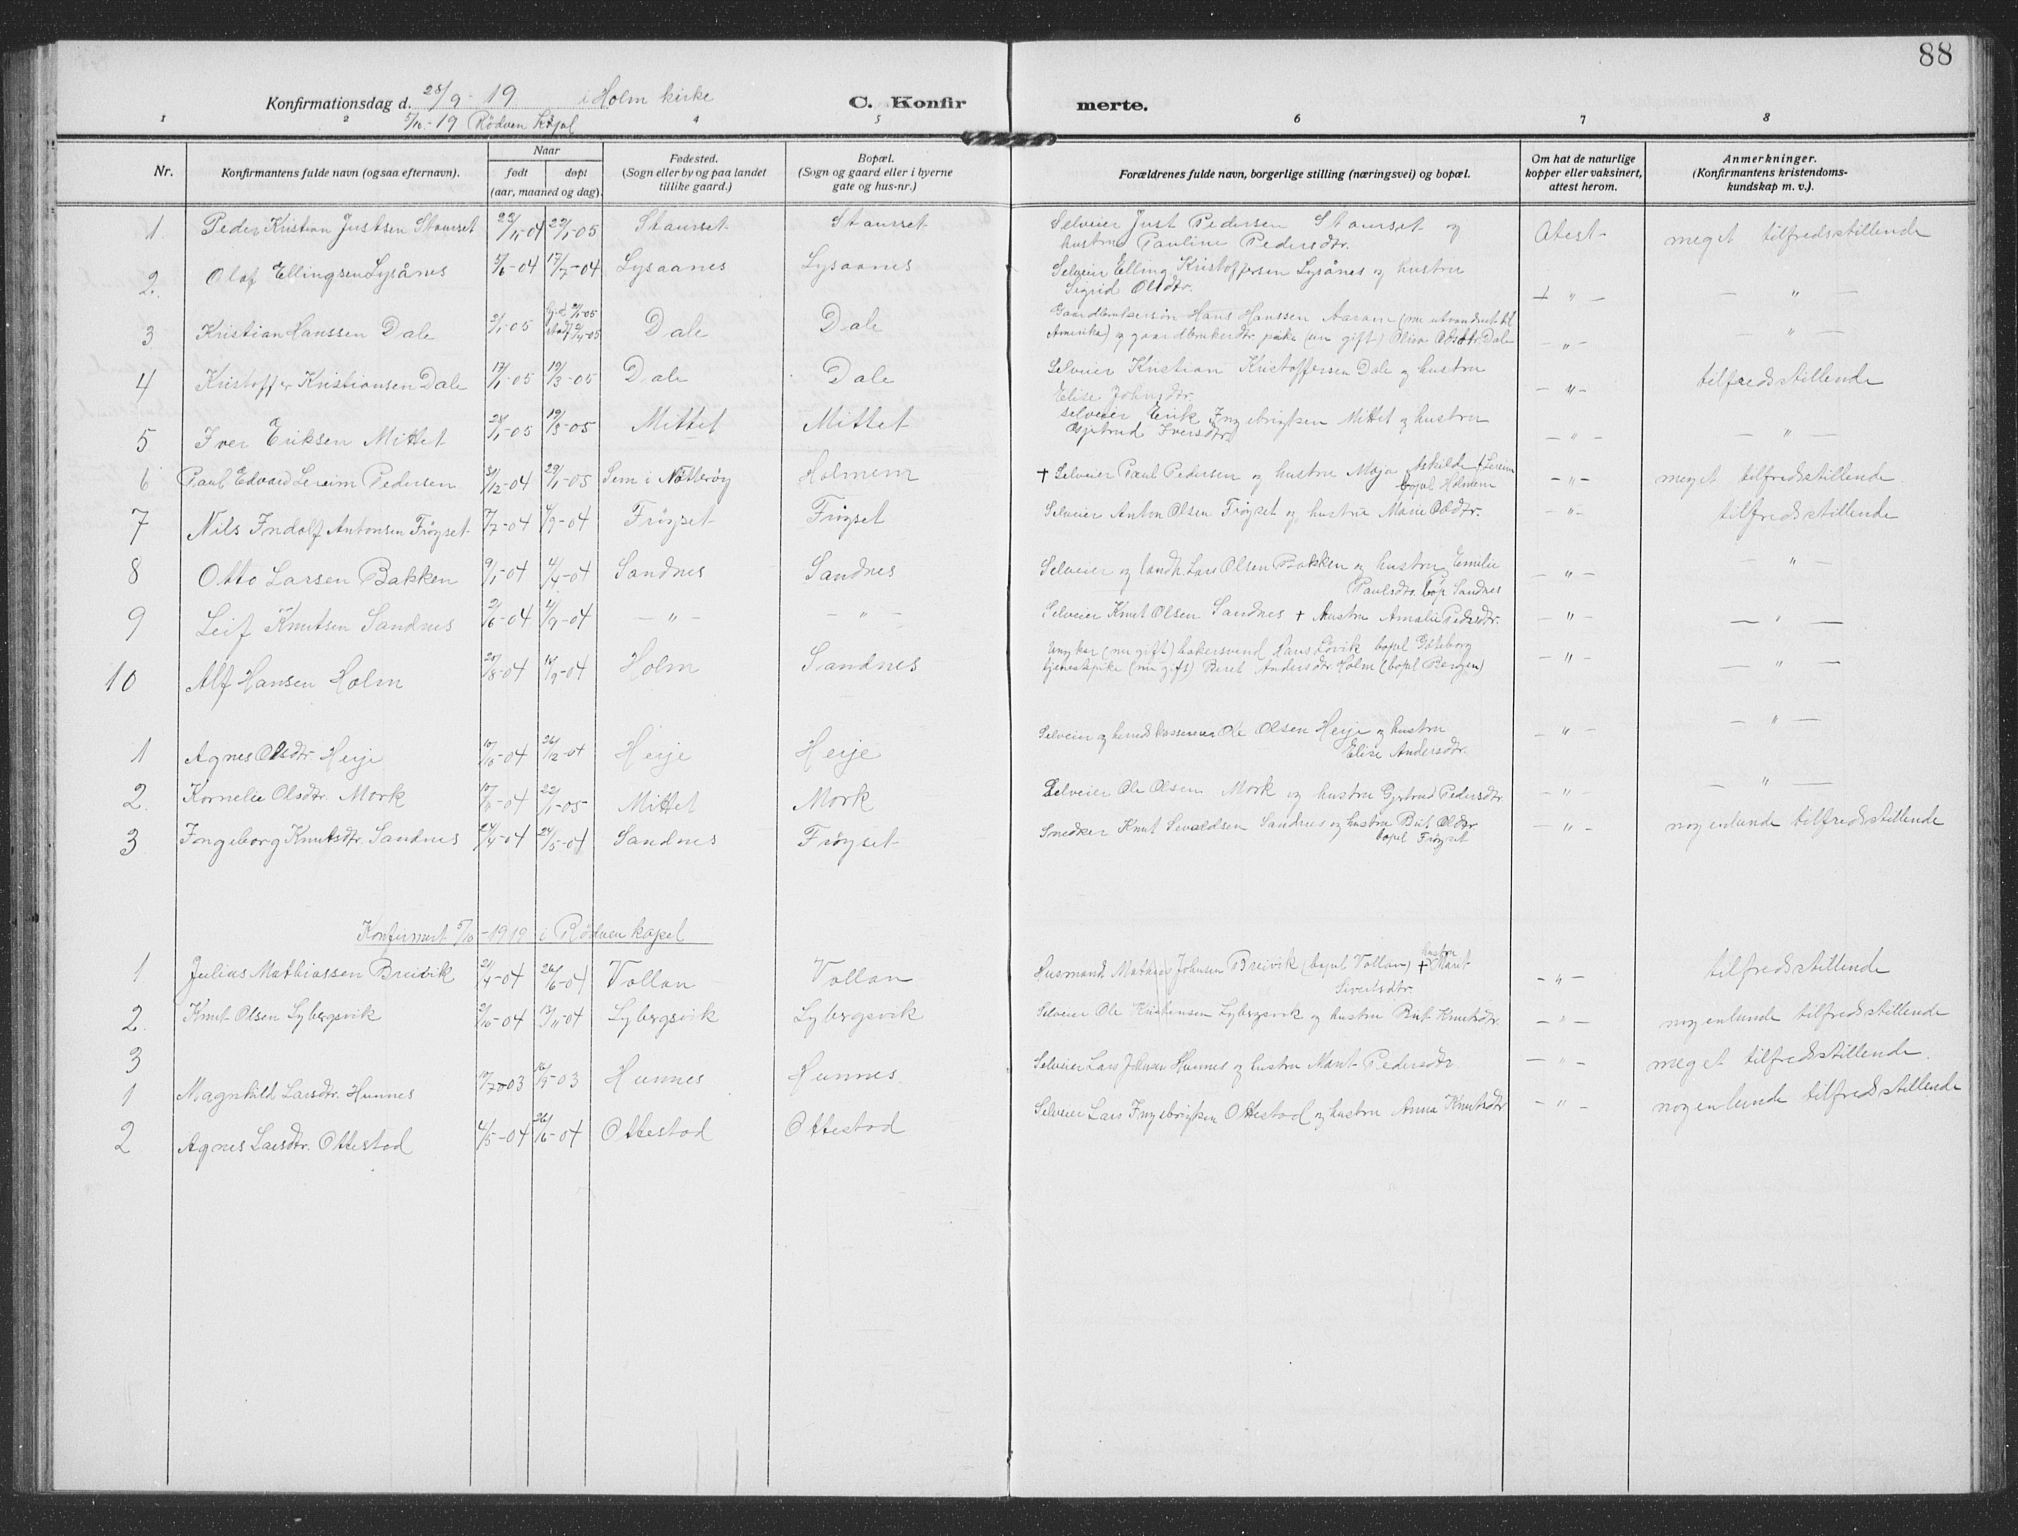 88
Konfirmationsdag d. 28/9-19 i Holm kirke C. Konfir merte.
5/10-19 Rødven kapel
1 2 4 5 6 7 8
Nr. Konfirmantens fulde navn (ogsaa efternavn). Naar født døpt (aar, maaned og dag). Fødested. (Sogn eller by og paa landet tillike gaard.) Bopæl. (Sogn og gaard eller i byerne gate og hus-nr.) Forældrenes fulde navn, borgerlige stilling (næringsvei) og bopæl. Om hat de naturlige kopper eller vaksinert, attest herom. Anmerkninger. (Konfirmantens kristendoms-kundskap m. v.).
1. Peder Kristian Justsen Staurset 29/1-05 Staurset Staurset Selveier Just Pedersen Staurset og hustru Pauline Pedersdtr. Atest meget tilfredsstillende
2. Olaf Ellingsen Lysånes 5/6-04 17/7-04 Lysaanes Lysaanes Selveier Elling Kristoffersen Lysånes og hustru Sigrid Olsdtr. — " — — " —
3 Kristian Hanssen Dale Dale Dale Gaardbrukersøn Hans Hanssen (nu utvandret til Amerika) og gaardbrukerdtr. pike (nu gift) Dale — " — — " —
4 Kristoffer Kristiansen Dale 17/1-05 19/3-05 Dale Dale Selveier Kristian Kristoffersen Dale og hustru Elise Johnsdtr. — " — tilfredsstillende
5 Iver Eriksen Mittet 28/1-05 19/3-05 Mittet Mittet Selveier Erik Ingebrigtsen Mittet og hustru Gjertrud Iversdtr. — " — — " —
6 Paul Edvard Lereim Pedersen 31/12-04 29/1-05 Sem i Nøtterøy Holmem + Selveier Paul Pedersen og hustru Maja f. Lereim bopæl Holmem — " — meget tilfredsstillende
7 Nils Indolf Antonsen Frøyset 7/7-04 4/9-04 Frøyset Frøyset Selveier Anton Olsen Frøyset og hustru Marie Olsdtr. — " — tilfredsstillende
8 Otto Larsen Bakken 9/1-04 4/4-04 Sandnes Sandnes Selveier og landh. Lars Olsen Bakken og hustru Emilie Paulsdtr. bop Sandnes — " — — " —
9 Leif Knutsen Sandnes 2/6-04 4/9-04 — " — — " — Selveier Knut Olsen Sandnes + hustru Amalie Pedersdtr. — " — — " —
10 Alf Hansen Holm 20/8-04 18/9-04 Holm Sandnes Ungkar (nu gift) bakersvend Hans Løvik bopel Gøteborg tjenestepike (nu gift) Beret Andersdtr Holm (bopel Bergen) — " — — " —
1 Agnes Olsdtr Heije 26/12-04 Heije Heije Selveier og herredskasserer Ole Olsen Heije og hustru Elise Andersdtr. — " — — " —
2. Kornelie Olsdtr. Mork 22/1-05 Mittet Mork Selveier Ole Olsen Mork og hustru Gjertrud Pedersdtr — " — — " —
3 Ingeborg Knutsdtr. Sandnes 27/4-04 24/5-04 Sandnes Frøyset Snedker Knut Sevaldsen Sandnes og hustru Brit Olsdtr bopel Frøyset — " — nogenlunde tilfredsstillende
Konfirmert 5/10-1919 i Rødven kapel
1 Julius Mathiassen Breivik 21/4-04 26/6-04 Vollan Vollan Husmand Mathias Johnsen Breivik (bopel Vollan) + hustru Marit Sivertsdtr. — " — tilfredsstillende
2. Knut Olsen Lybergsvik 2/10-04 13/11-04 Lybergsvik Lybergsvik Selveier Ole Kristensen Lybergsvik og hustru Brit Knutsdtr. — " — nogenlunde tilfredsstillende
3
1 Magnhild Larsdtr. Hunnes Hunnes Hunnes Selveier Lars Johnsen Hunnes og hustru Marit Pedersdtr. — " — meget tilfredsstillende
2 Agnes Larsdtr. Ottestad 4/5-04 26/6-04 Ottestad Ottestad Selveier Lars Ingebrigtsen Ottestad og hustru Anna Knutsdtr — " — nogenlunde tilfredsstillende